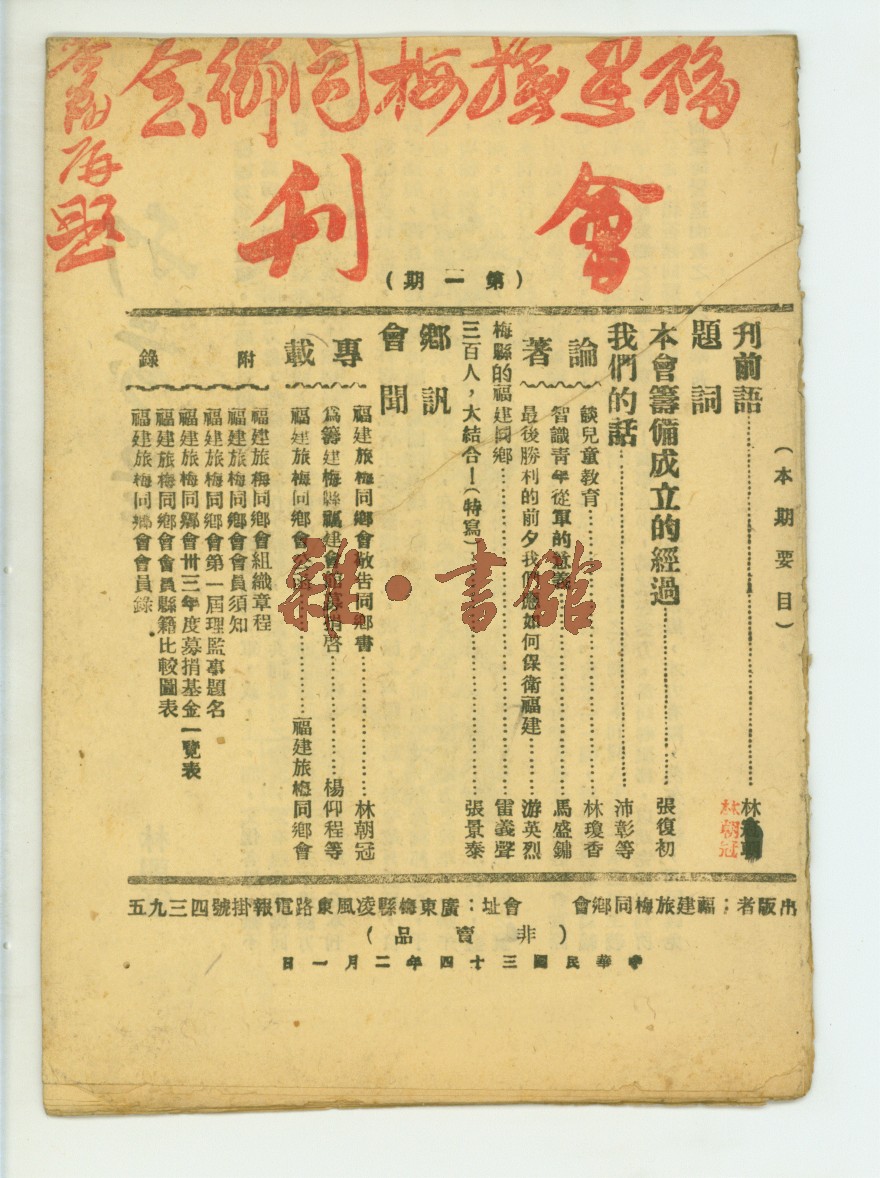 福建旅梅同鄉會
會刊
題
（第一期）
（本期要目）
刊前語……林
林朝冠
題詞
本會籌備成立的經過……張復初
我們的話……沛彰等
論著
談兒童教育……林瓊香
智識青年從軍的意義……馬盛鏞
最後勝利的前夕我們應如何保衛福建……游英烈
梅縣的福建同鄉……雷義聲
三百人，大結合！（特寫）……張景泰
鄉訊
會聞
專載
福建旅梅同鄉會敬告同鄉書……林朝冠
爲籌建梅縣福建會館募捐啓……楊仰程等
福建旅梅同鄉會公函……福建旅梅同鄉會
附錄
福建旅梅同鄉會組織章程
福建旅梅同鄉會會員須知
福建旅梅同鄉會第一屆理監事題名
福建旅梅同鄉會卅三年度募捐基金一覽表
福建旅梅同鄉會會員縣籍比較圖表
福建旅梅同鄉會會員錄
出版者：福建旅梅同鄉會　會址：廣東梅縣凌風東路電報掛號四三九五
（非賣品）
中華民國三十四年二月一日
雜·書館